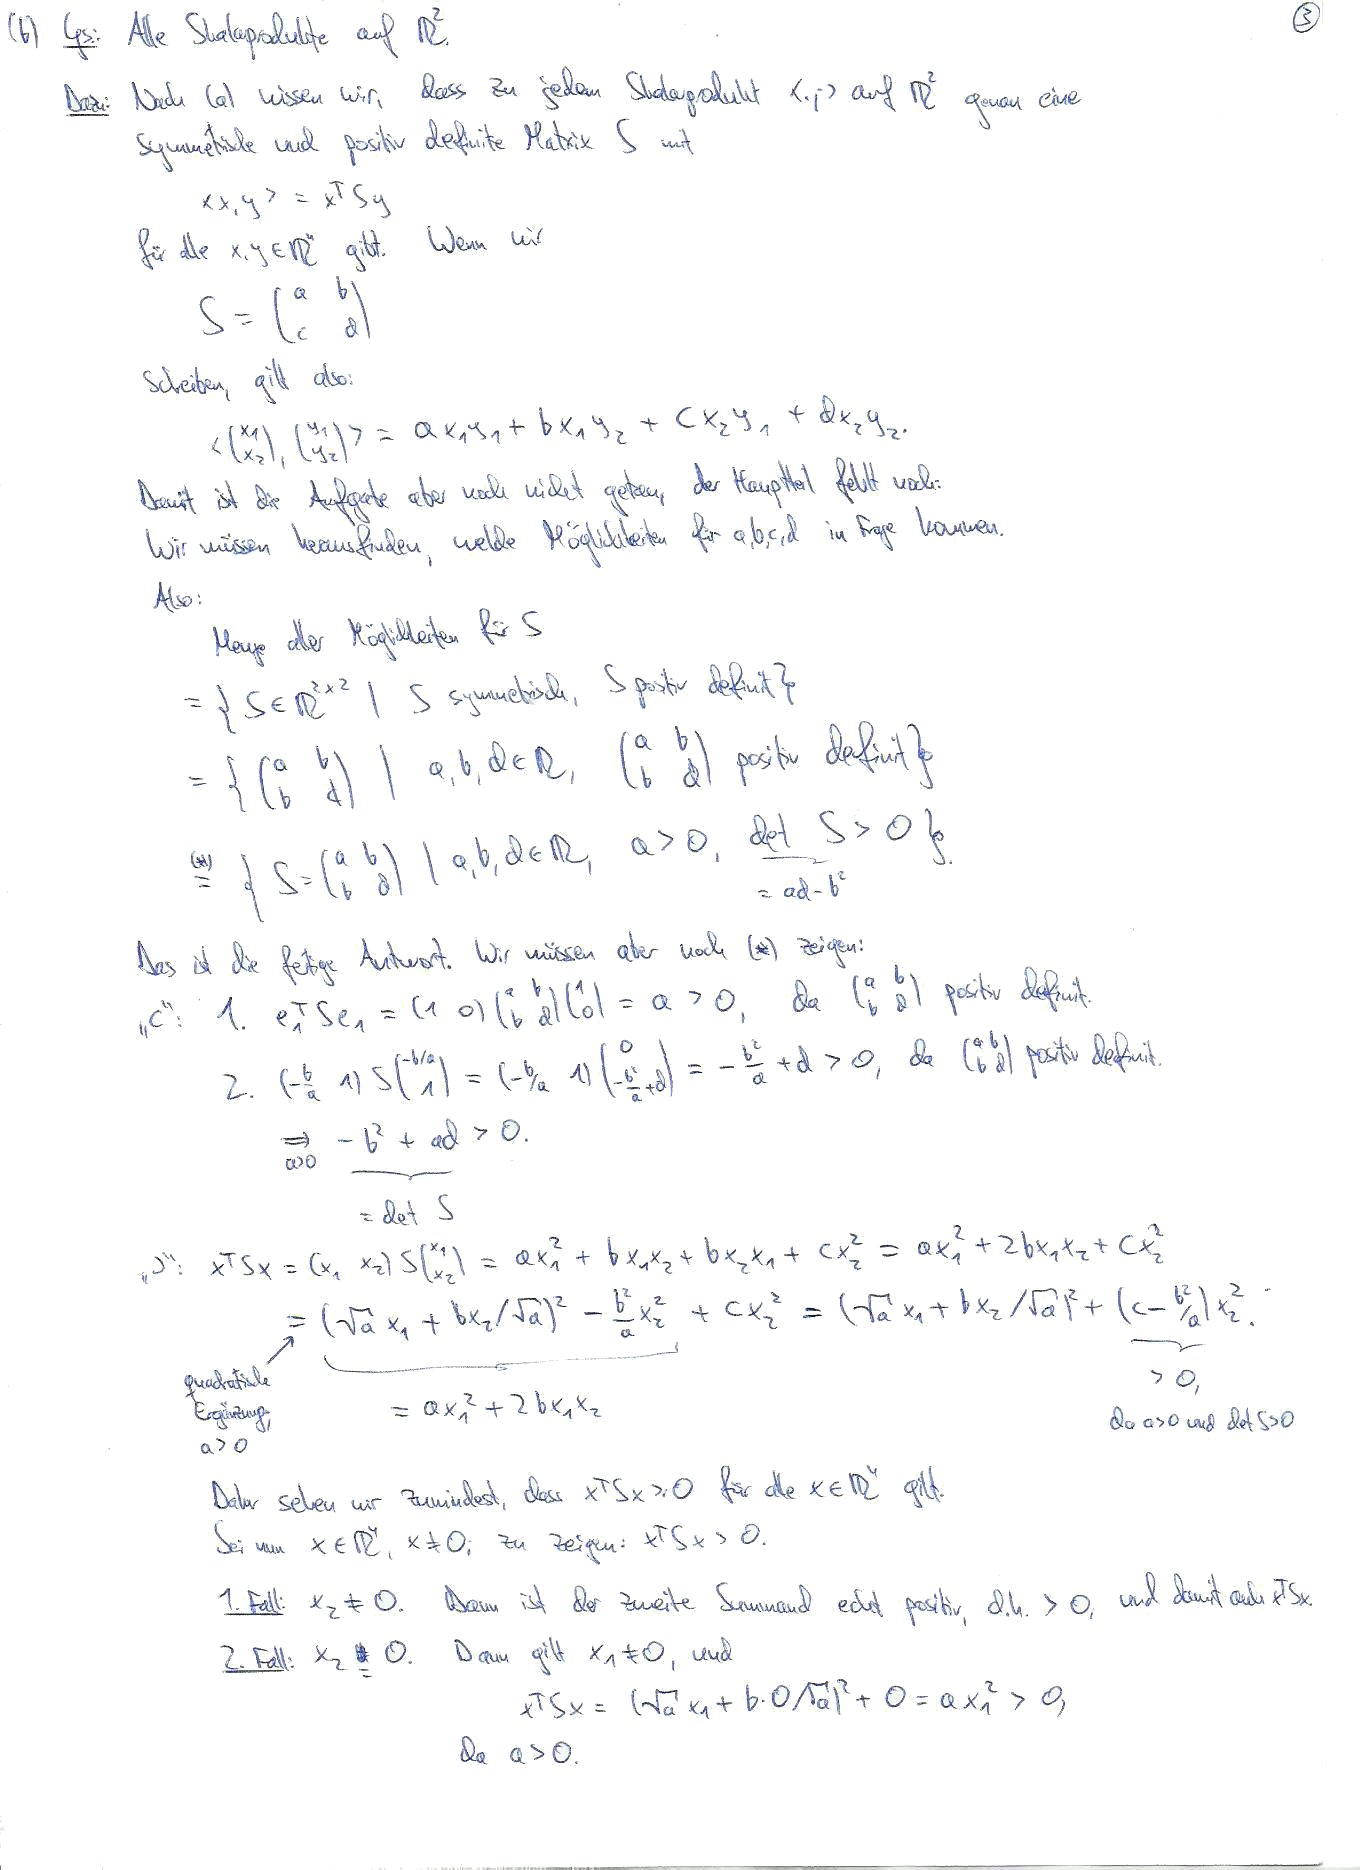 ③
(b) Ges: Alle Skalarprodukte auf ℝ².
Dazu: Nach (a) wissen wir, dass zu jedem Skalarprodukt <·,·> auf ℝ² genau eine
symmetrische und positiv definite Matrix S mit
<x,y> = xᵀSy
für alle x,y ∈ ℝⁿ gibt. Wenn wir
S = (a b
c d)
schreiben, gilt also:
<(x₁ x₂), (y₁ y₂)> = ax₁y₁ + bx₁y₂ + cx₂y₁ + dx₂y₂.
Damit ist die Aufgabe aber noch nicht getan, der Hauptteil fehlt noch:
Wir müssen herausfinden, welche Möglichkeiten für a,b,c,d in Frage kommen.
Also:
Menge aller Möglichkeiten für S
= {S ∈ ℝ²ˣ² | S symmetrisch, S positiv definit}
= {(a b b d) | a,b,d ∈ ℝ, (a b b d) positiv definit}
(*) = {S = (a b b d) | a,b,d ∈ ℝ, a > 0, det S > 0}.
= ad - b²
Das ist die fertige Antwort. Wir müssen aber noch (*) zeigen:
„⊂“: 1. e₁ᵀSe₁ = (1 0)(a b b d)(1 0) = a > 0, da (a b b d) positiv definit.
2. (-b/a 1) S(-b/a 1) = (-b/a 1)(0 -b²/a + d) = -b²/a + d > 0, da (a b b d) positiv definit.
⇒ a>0 -b² + ad > 0.
= det S
„⊃“: xᵀSx = (x₁ x₂) S(x₁ x₂) = ax₁² + bx₁x₂ + bx₂x₁ + cx₂² = ax₁² + 2bx₁x₂ + cx₂²
= (√a x₁ + bx₂/√a)² - b²/a x₂² + cx₂² = (√a x₁ + bx₂/√a)² + (c - b²/a) x₂².
quadratische
Ergänzung,
a > 0
= ax₁² + 2bx₁x₂
> 0,
da a>0 und det S>0
Daher sehen wir zumindest, dass xᵀSx ≥ 0 für alle x ∈ ℝⁿ gilt.
Sei nun x ∈ ℝⁿ, x ≠ 0; zu zeigen: xᵀSx > 0.
1. Fall: x₂ ≠ 0. Dann ist der zweite Summand echt positiv, d.h. > 0, und damit auch xᵀSx.
2. Fall: x₂ = 0. Dann gilt x₁ ≠ 0, und
xᵀSx = (√a x₁ + b·0/√a)² + 0 = ax₁² > 0,
da a > 0.